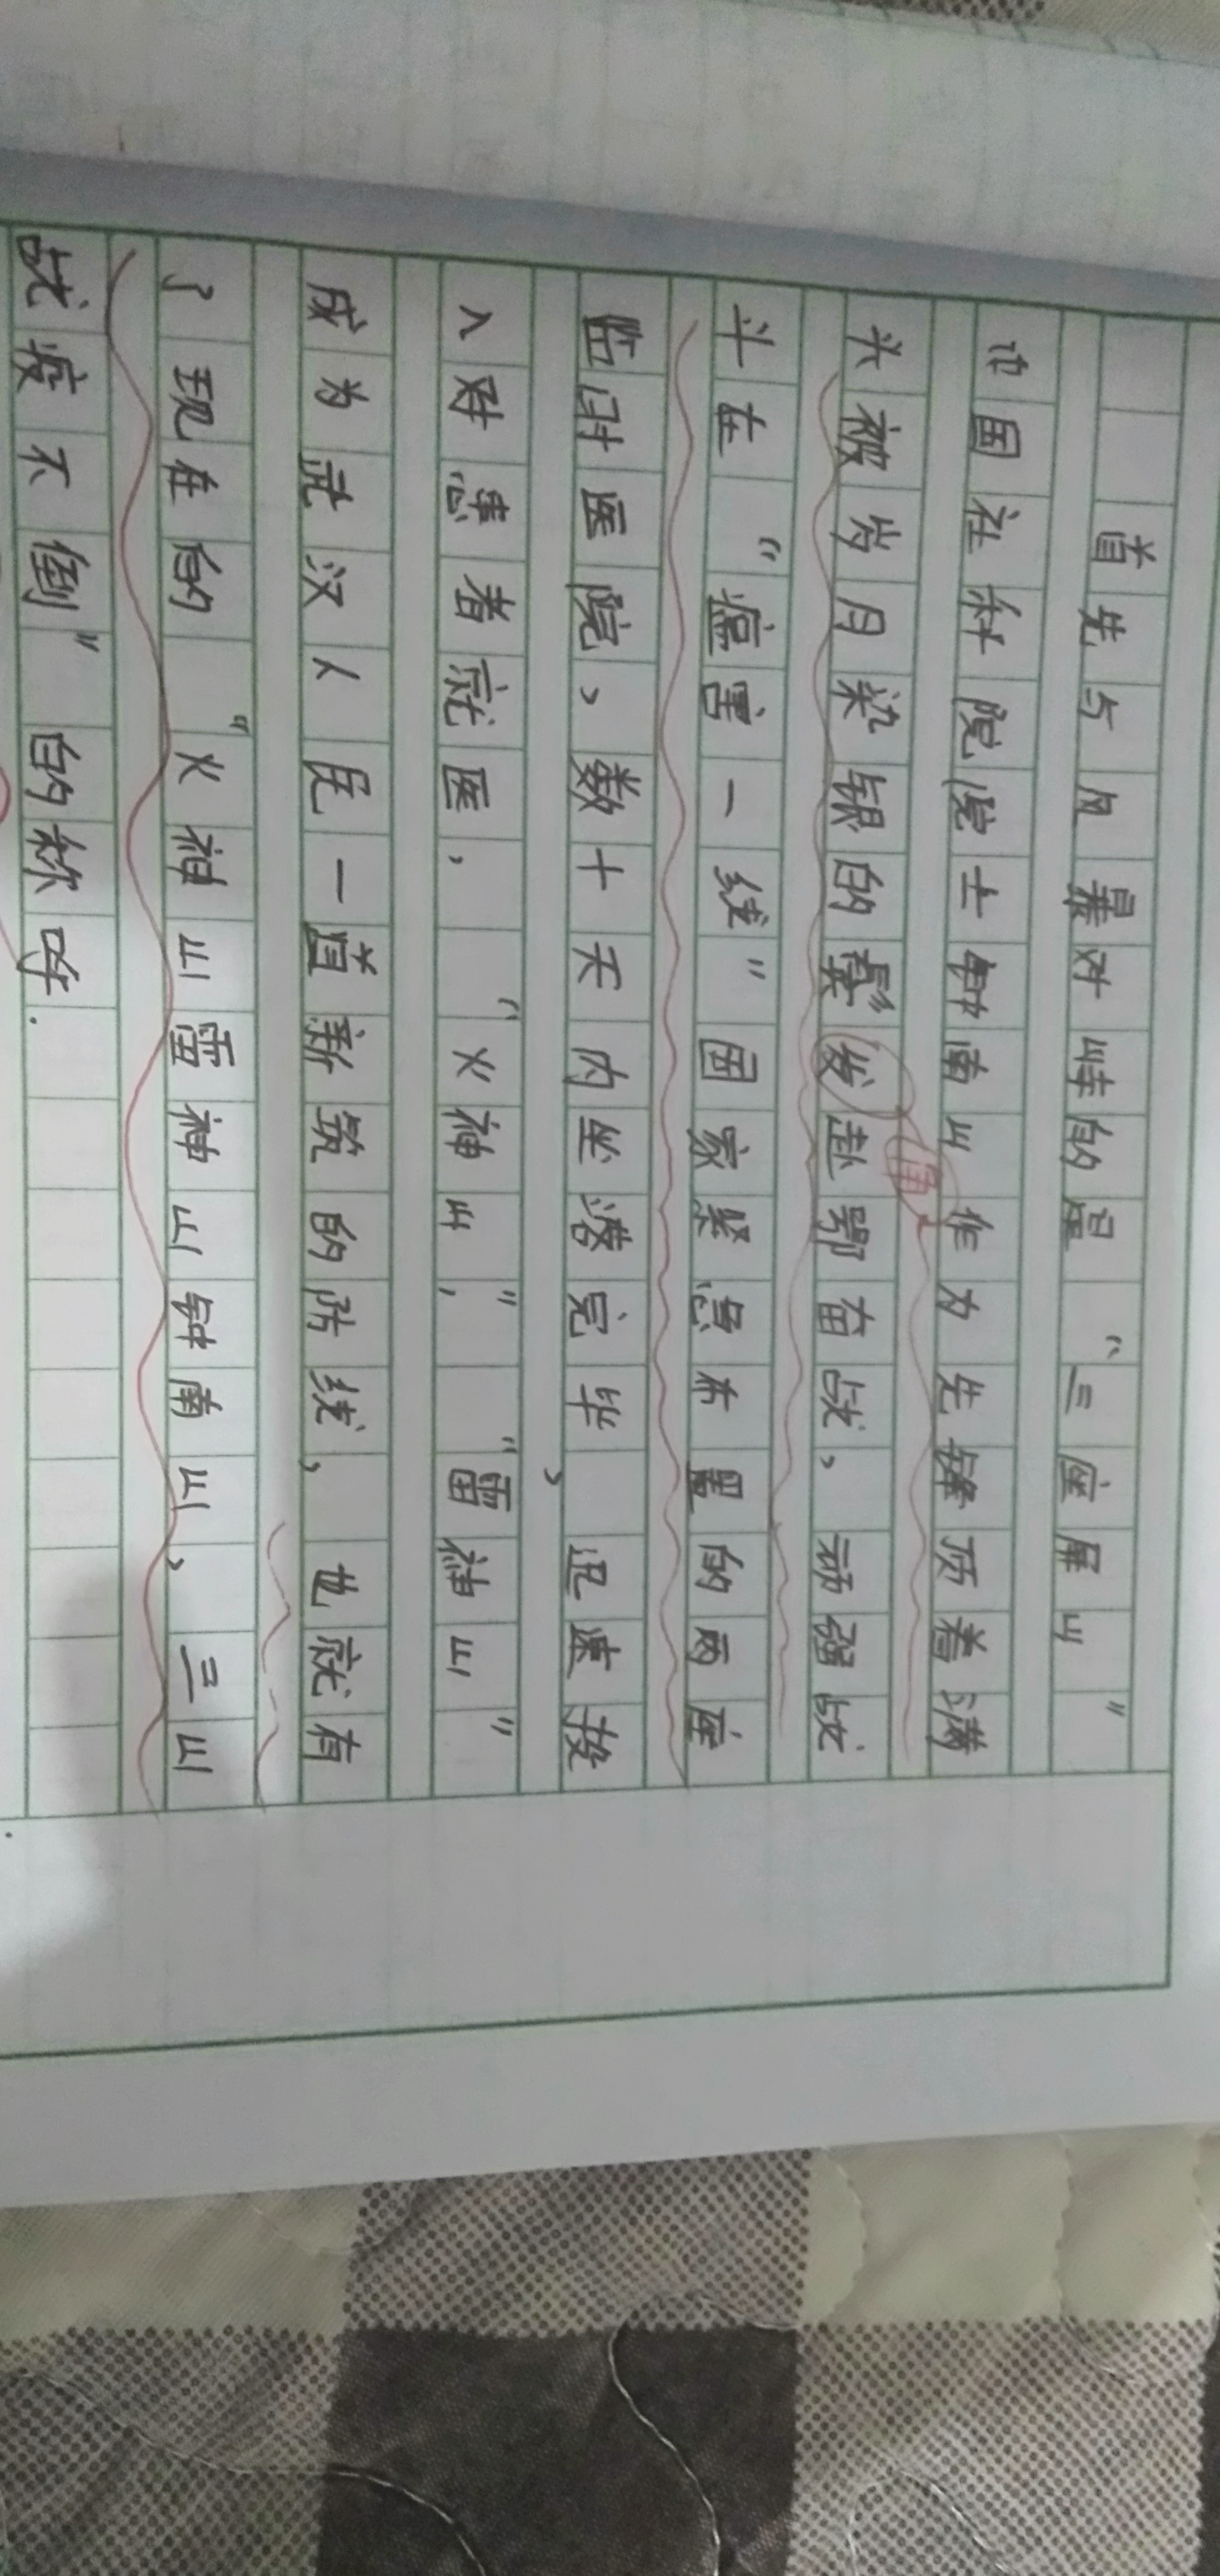 首先与风暴对峙的是“三座屏山”
中国社科院院士钟南山作为先锋顶着满
头被岁月染银的鬓发赴鄂奋战,励强战
斗在“瘟害一线”国家紧急布置的两座
监时医院,数十天内坐落完毕,迅速投
入对患者就医,“火神山”,“雷神山”
成为武汉人民一道新筑的防线,也就有
了现在的“火神山雷神山钟南山,三山
战疫不倒”的称呼.